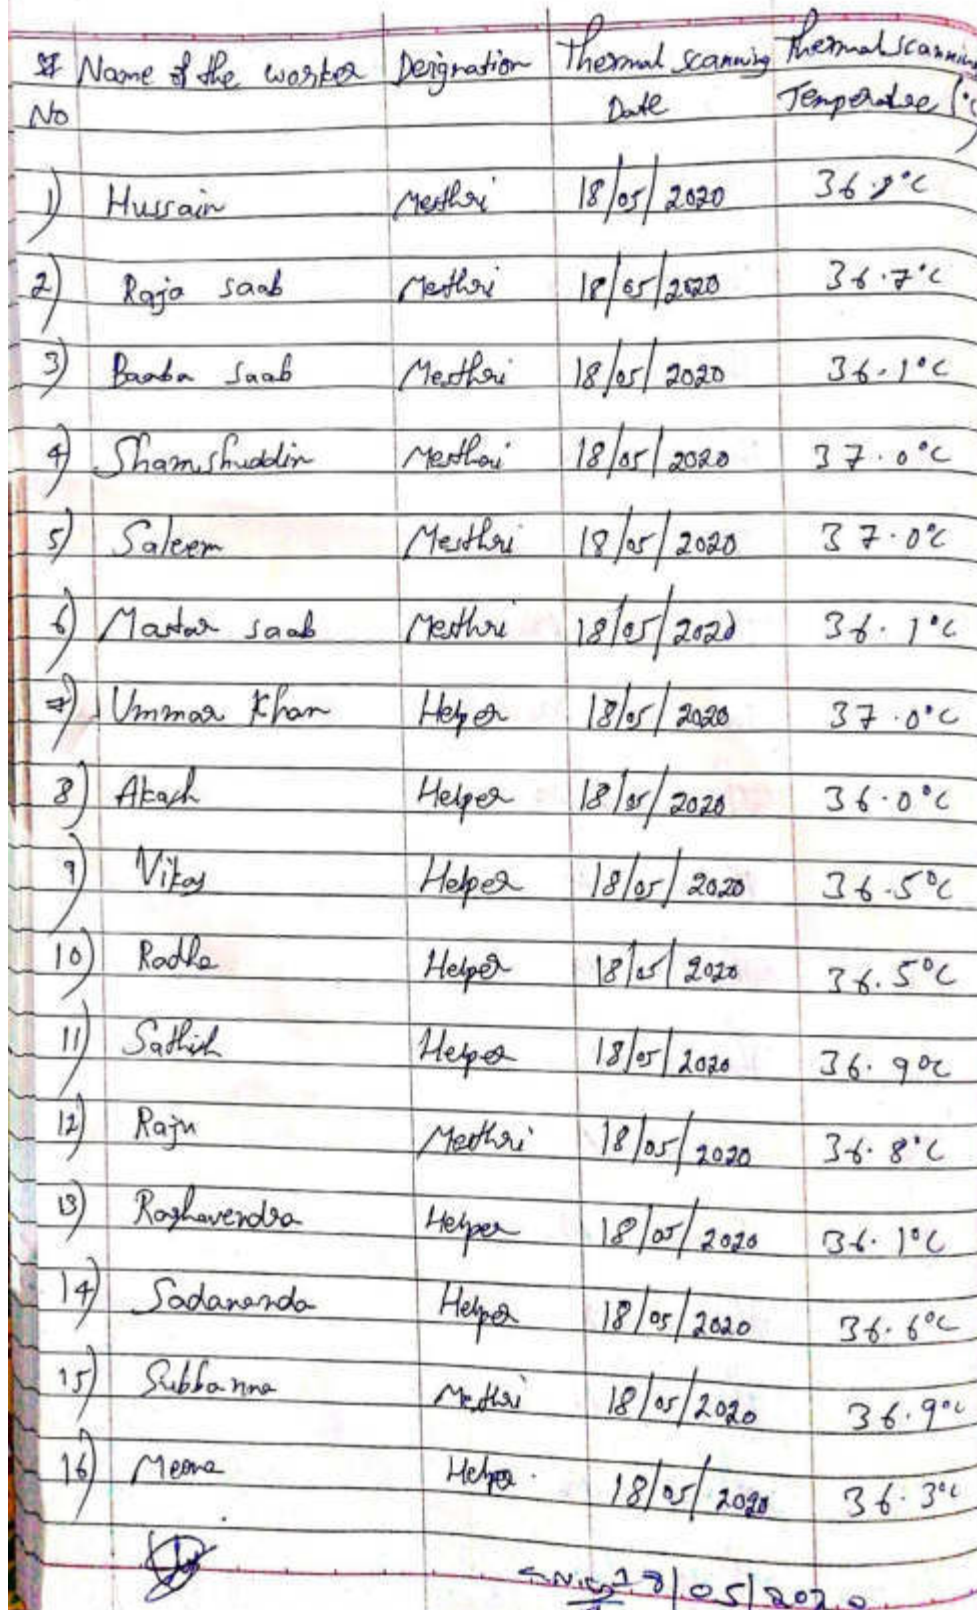 Sl Name of the worker Designation Thermal scanning Thermal scanning
No Date Temperature (°C)
1) Hussain Mesthri 18/05/2020 36.8°C
2) Raja saab Mesthri 18/05/2020 36.7°C
3) Baaba saab Mesthri 18/05/2020 36.1°C
4) Shamshuddin Mesthri 18/05/2020 37.0°C
5) Saleem Mesthri 18/05/2020 37.0°C
6) Mastar saab Mesthri 18/05/2020 36.1°C
7) Ummar Khan Helper 18/05/2020 37.0°C
8) Akash Helper 18/05/2020 36.0°C
9) Vikas Helper 18/05/2020 36.5°C
10) Radha Helper 18/05/2020 36.5°C
11) Sathish Helper 18/05/2020 36.9°C
12) Raju Mesthri 18/05/2020 36.8°C
13) Raghavendra Helper 18/05/2020 36.1°C
14) Sadananda Helper 18/05/2020 36.6°C
15) Subbanna Mesthri 18/05/2020 36.9°C
16) Meena Helper 18/05/2020 36.3°C
18/05/2020